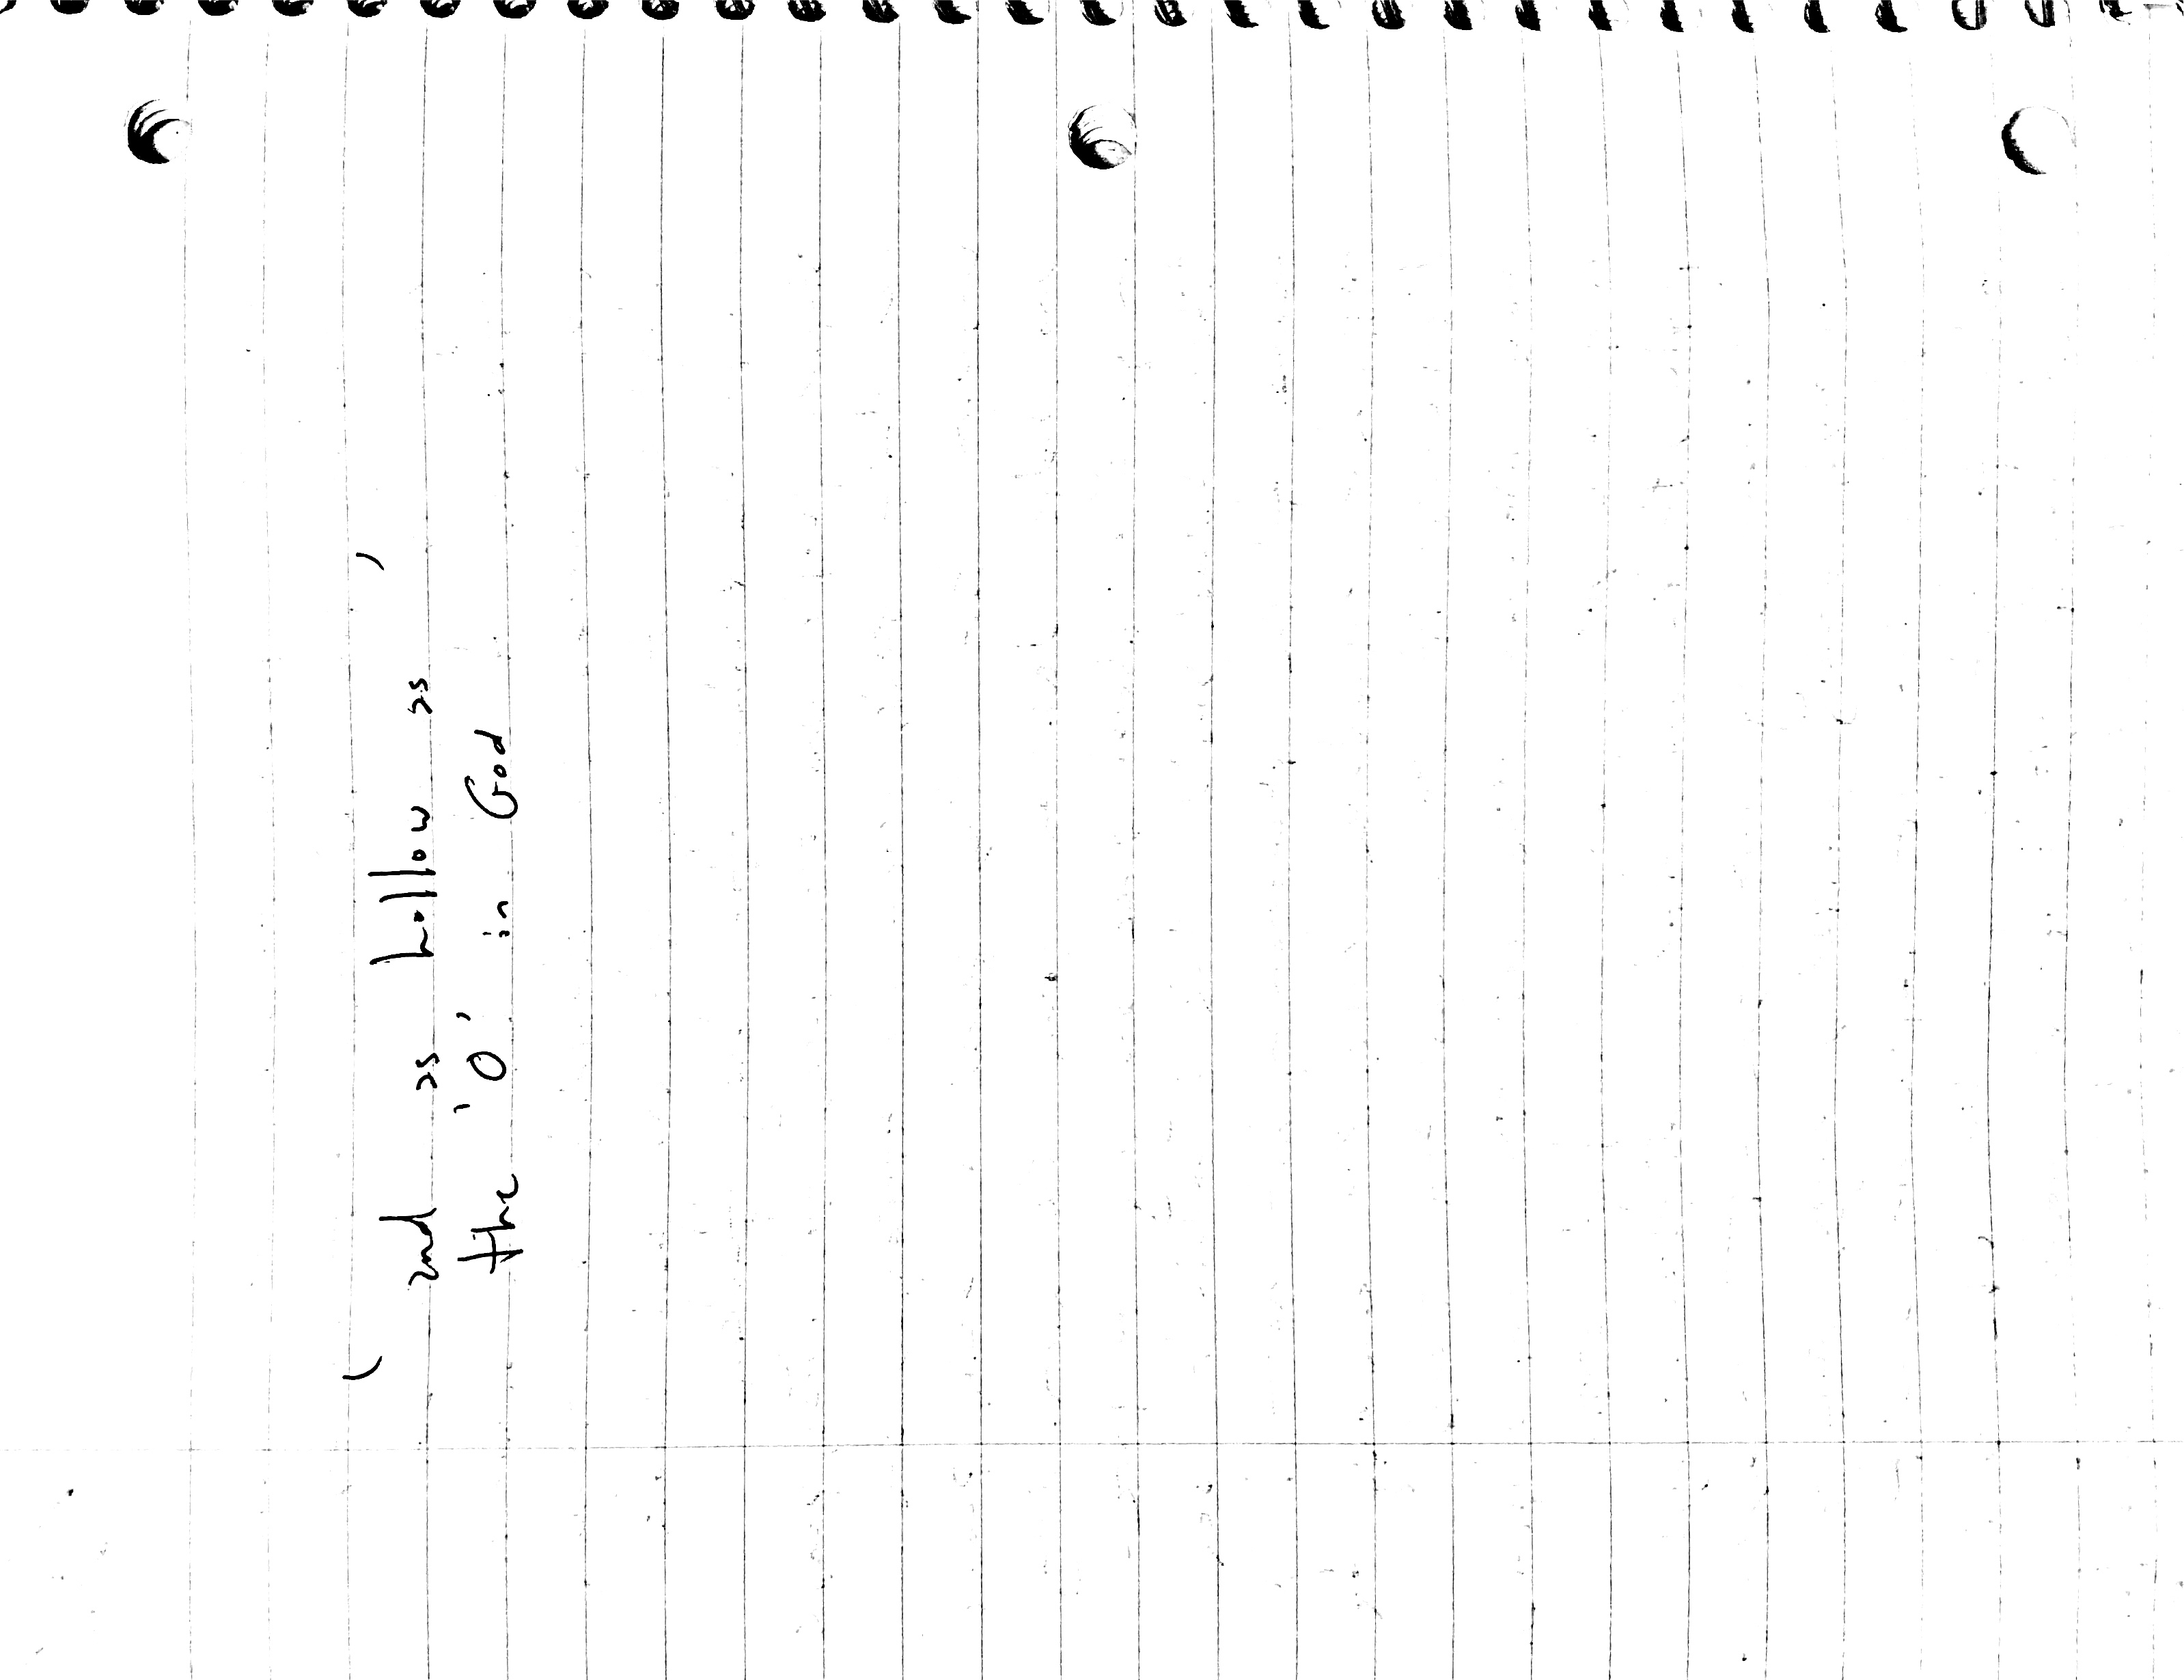 ' and as hollow as '
the 'O' in God